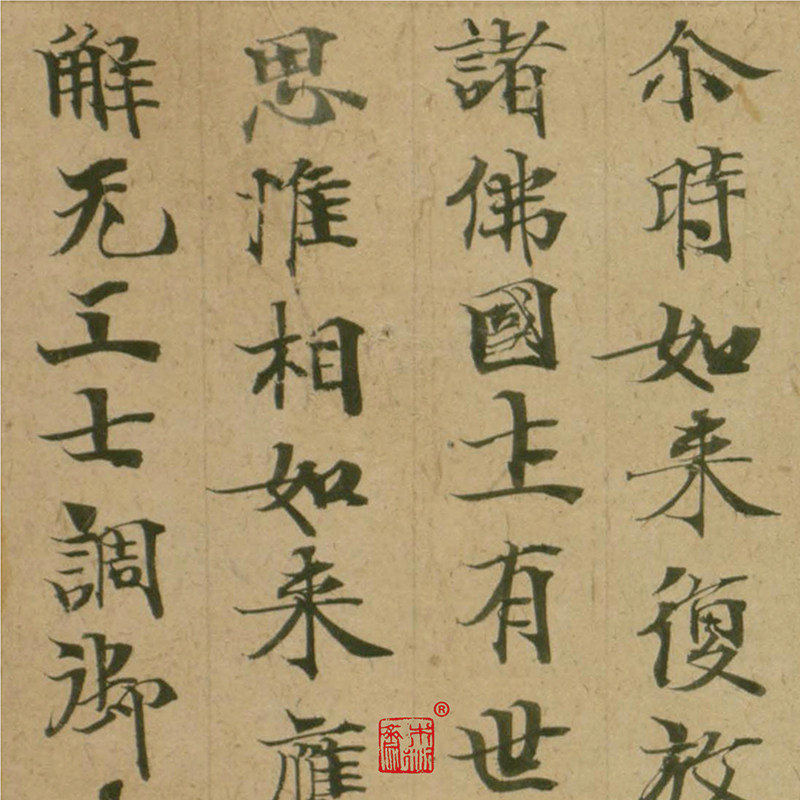 尒時如来復放
諸佛國土有世
思惟相如来應
解无上士調御
®